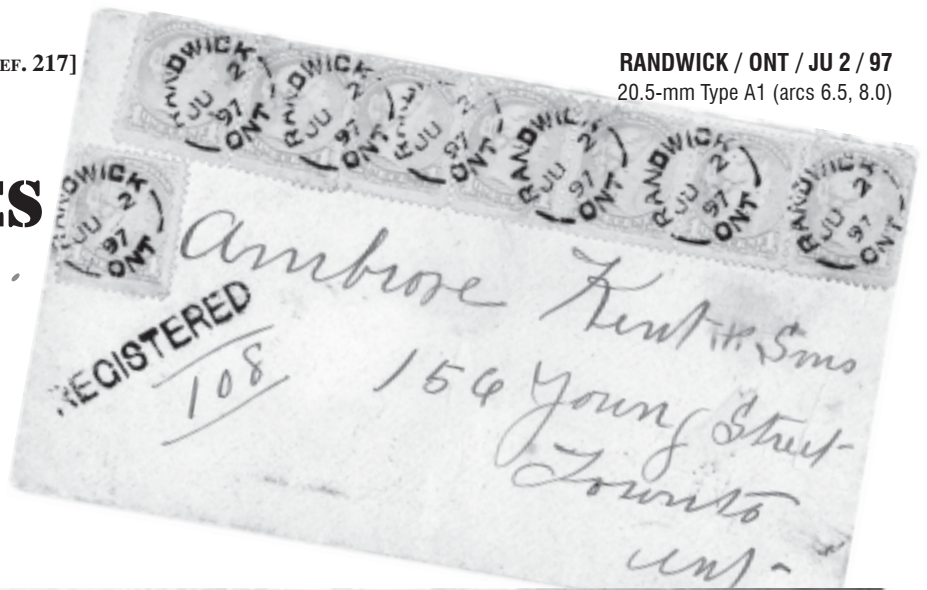 EF. 217]
RANDWICK / ONT / JU 2 / 97
20.5-mm Type A1 (arcs 6.5, 8.0)
RANDWICK JU 2 97 ONT
RANDWICK JU 2 97 ONT
RA 2 JU 97 ONT
RANDWICK JU 2 97 ONT
RANDWICK JU 2 97 ONT
RANDWICK JU 2 97 ONT
ES
RANDWICK JU 2 97 ONT
Ambrose Kent & Sons
REGISTERED
108
156 Young Street
Toronto
Ont-